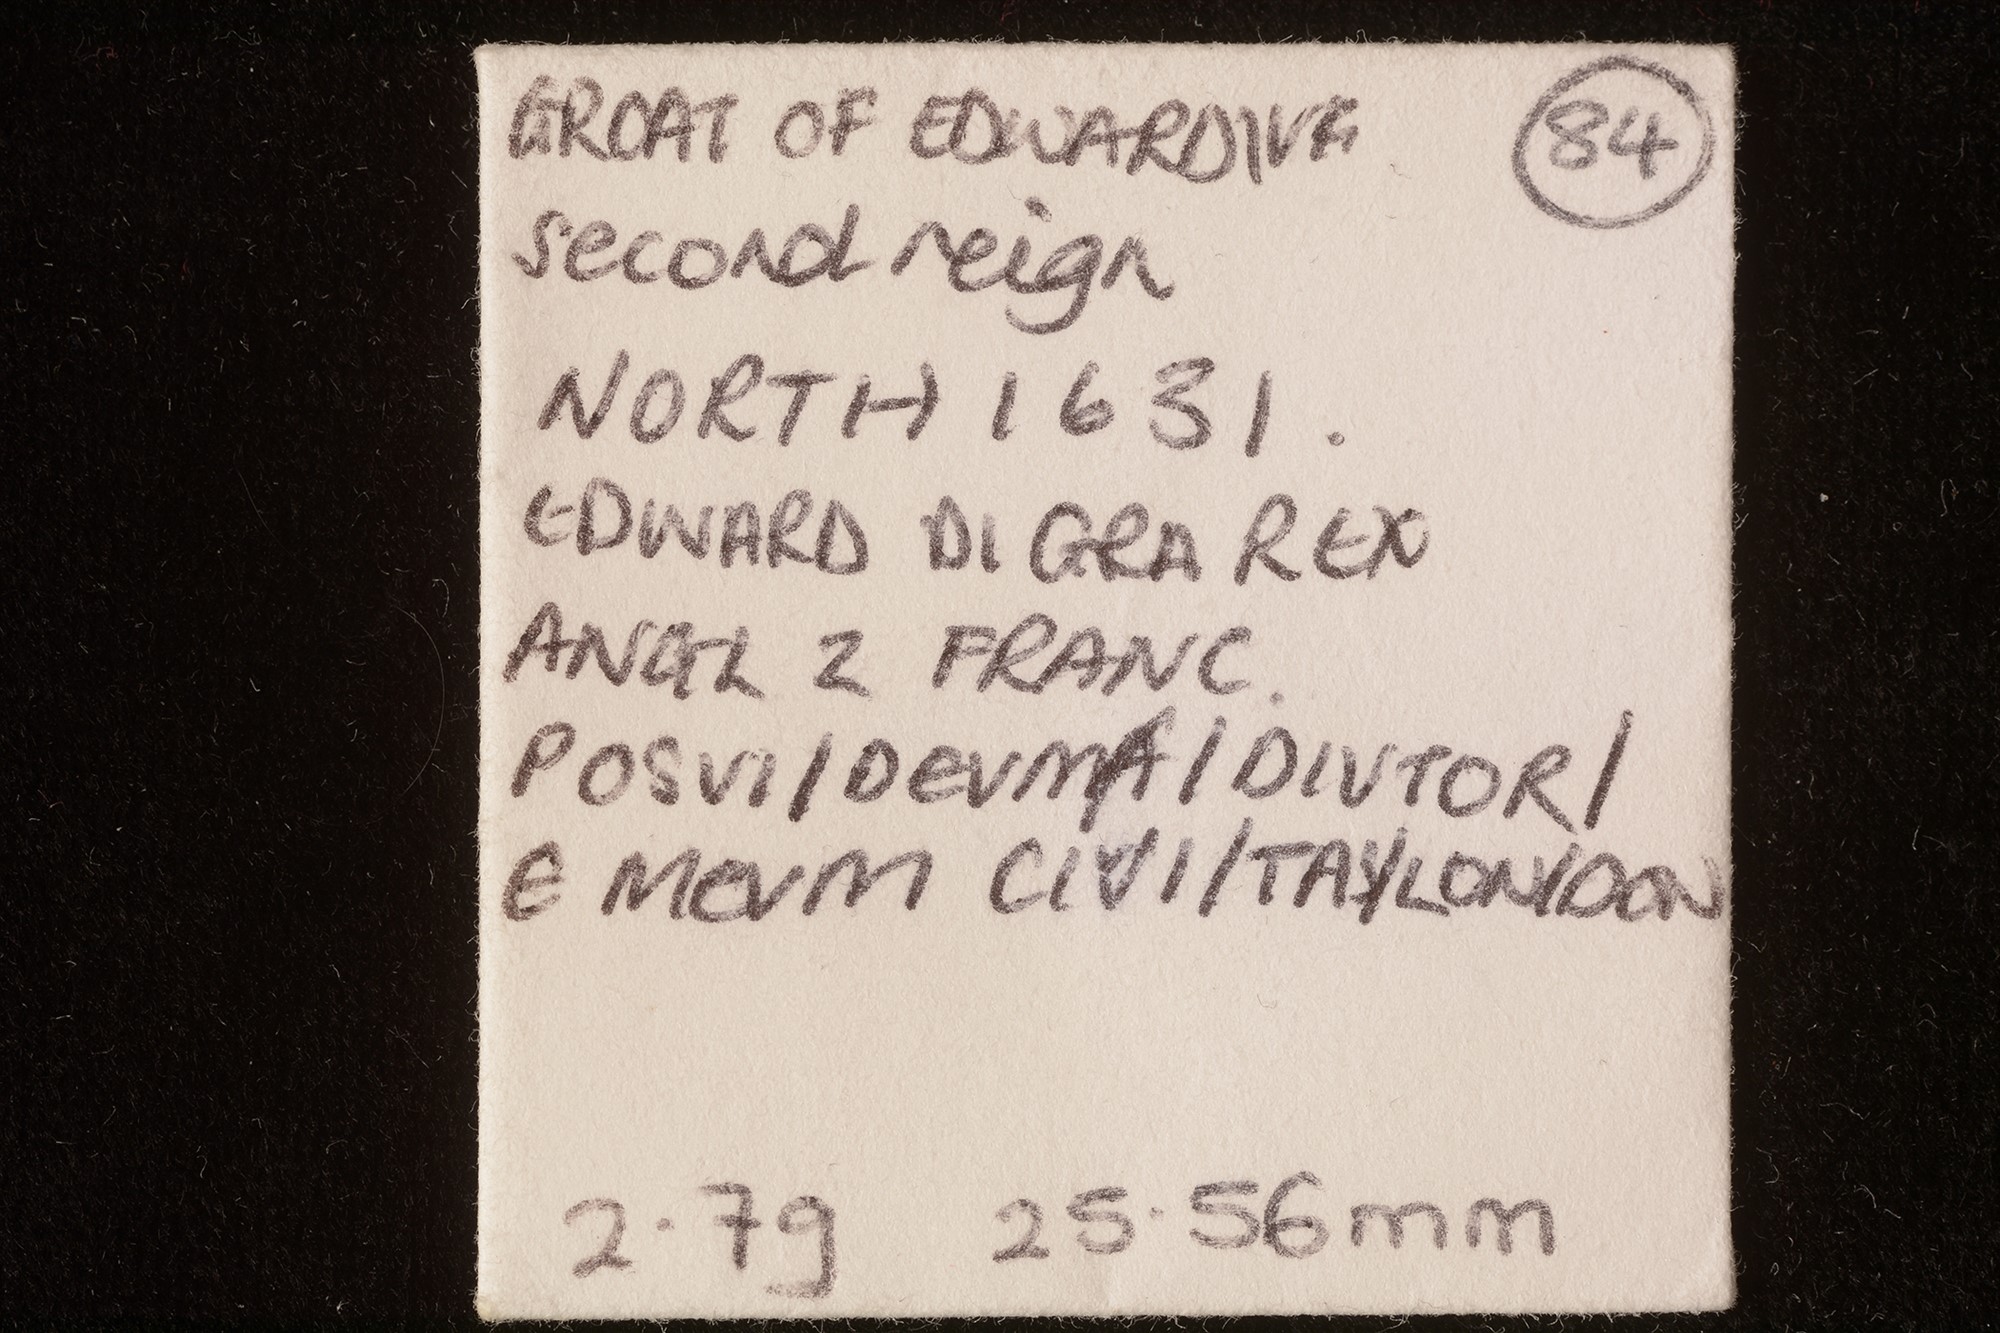 GROAT OF EDWARD IV 84
second reign
NORTH 1631.
EDWARD DI GRA REX
ANGL Z FRANC.
POSVI/DEVMA/DIVTOR/
E MEVM CIVI/TAS/LON/DON
2.7g 25.56mm